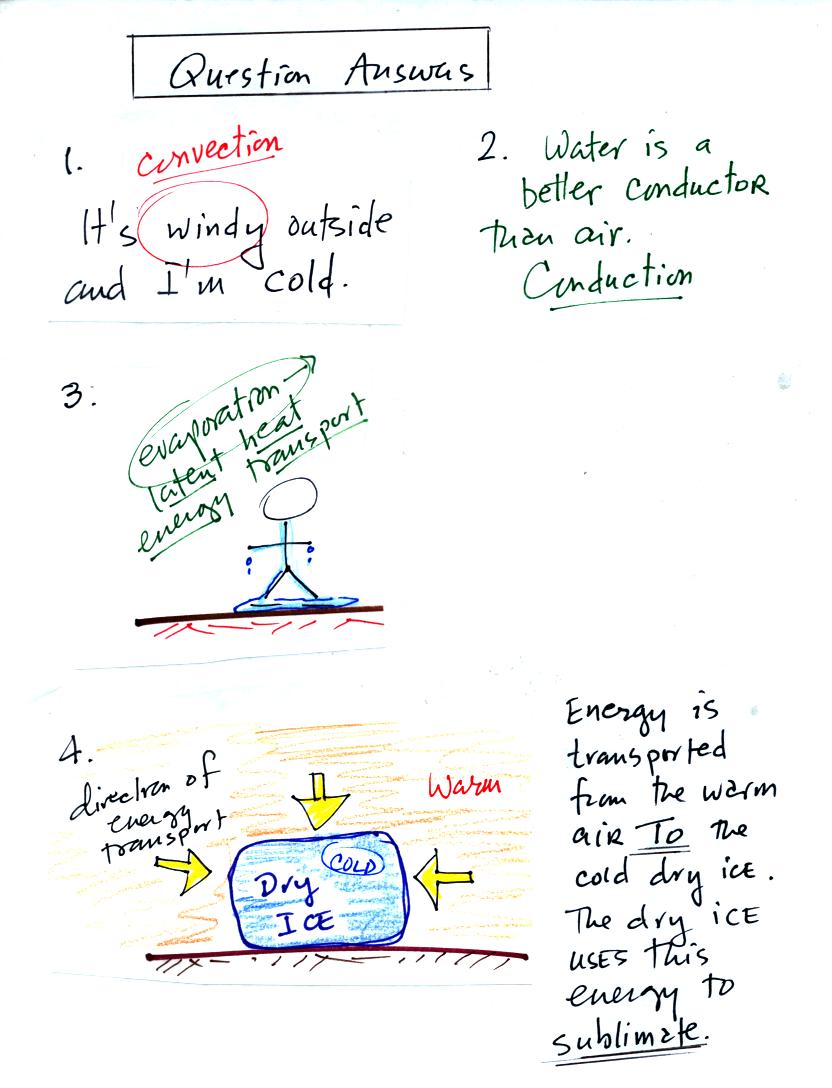 Question Answers
1. convection
It's windy outside
and I'm cold.
2. Water is a
better conductor
than air.
Conduction
3.
evaporation →
latent heat
energy transport
4.
direction of
energy
transport
Warm
COLD
Dry
ICE
Energy is
transported
from the warm
air To the
cold dry ice.
The dry ice
uses this
energy to
sublimate.